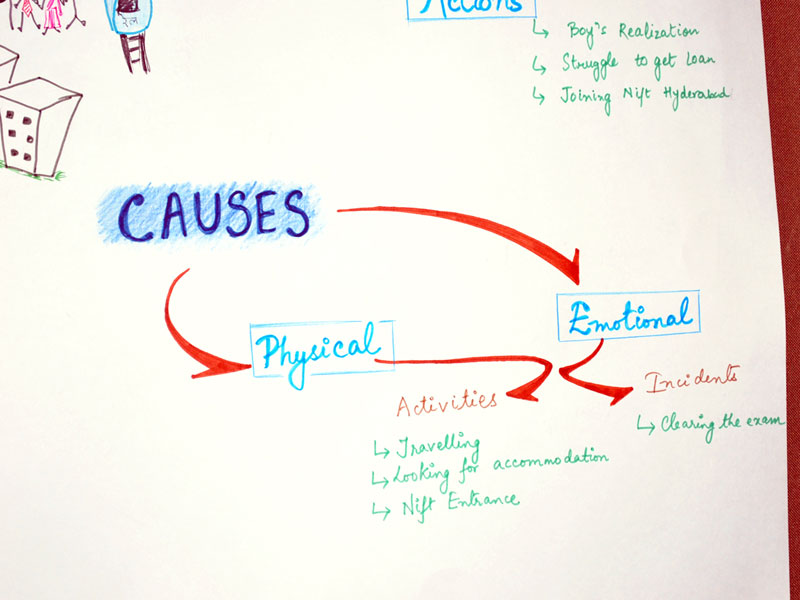 रेल
Actions
↳ Boy's Realization
↳ Struggle to get Loan
↳ Joining Nift Hyderabad
CAUSES
Emotional
Physical
Incidents
↳ Clearing the exam
Activities
↳ Travelling
↳ Looking for accommodation
↳ Nift Entrance